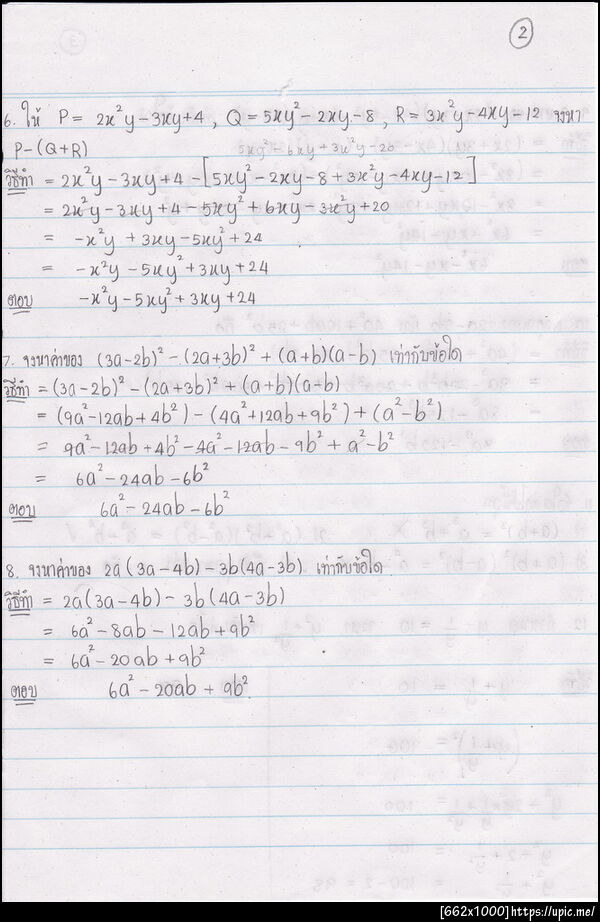 2
6. ให้ P = 2x²y-3xy+4 , Q = 5xy²-2xy-8 , R = 3x²y-4xy-12 จงหา
P-(Q+R) 5xy²-6xy+3x²y-20
วิธีทำ = 2x²y-3xy+4-[5xy²-2xy-8+3x²y-4xy-12]
= 2x²y-3xy+4-5xy²+6xy-3x²y+20
= -x²y+3xy-5xy²+24
= -x²y-5xy²+3xy+24
ตอบ -x²y-5xy²+3xy+24
7. จงหาค่าของ (3a-2b)²-(2a+3b)²+(a+b)(a-b) เท่ากับข้อใด
วิธีทำ = (3a-2b)²-(2a+3b)²+(a+b)(a-b)
= (9a²-12ab+4b²)-(4a²+12ab+9b²)+(a²-b²)
= 9a²-12ab+4b²-4a²-12ab-9b²+a²-b²
= 6a²-24ab-6b²
ตอบ 6a²-24ab-6b²
8. จงหาค่าของ 2a(3a-4b)-3b(4a-3b) เท่ากับข้อใด
วิธีทำ = 2a(3a-4b)-3b(4a-3b)
= 6a²-8ab-12ab+9b²
= 6a²-20ab+9b²
ตอบ 6a²-20ab+9b²
[662x1000]https://upic.me/